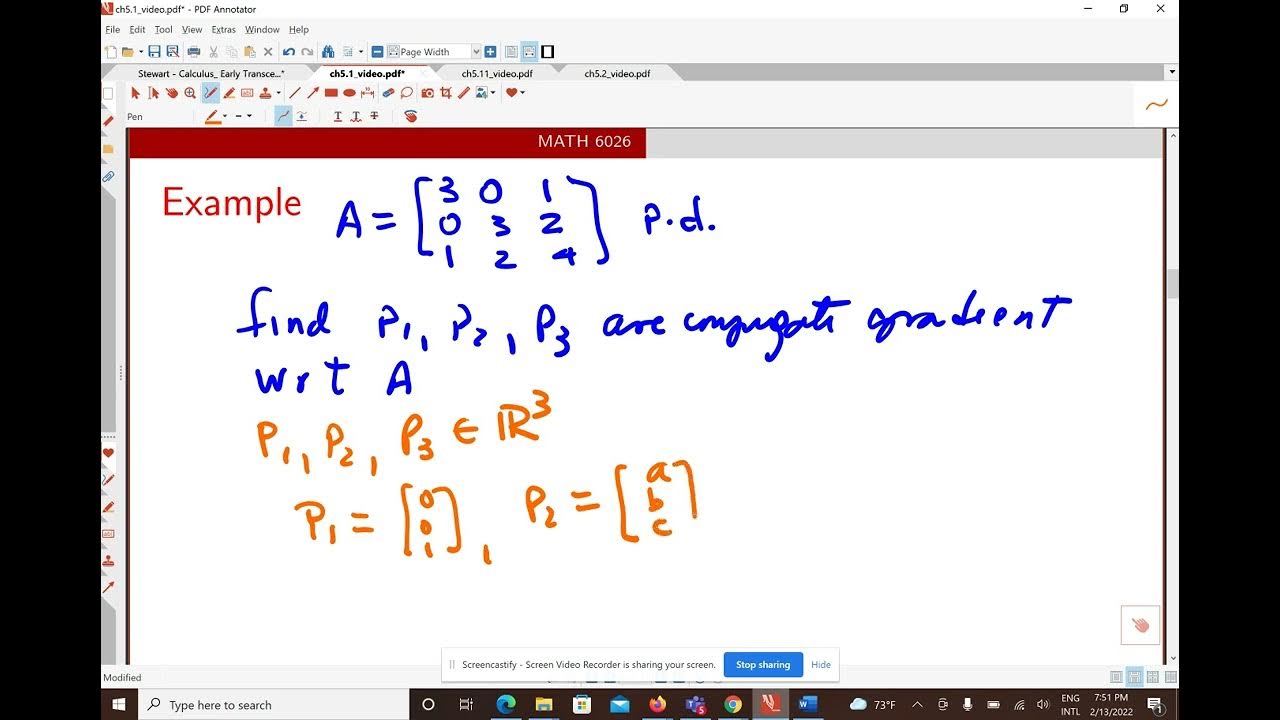 ch5.1_video.pdf* - PDF Annotator
File Edit Tool View Extras Window Help
Page Width
Stewart - Calculus_ Early Transce...* ch5.1_video.pdf* ch5.11_video.pdf ch5.2_video.pdf
Pen
MATH 6026
Example
A = [3 0 1
0 3 2
1 2 4] p.d.
find P1, P2, P3 are conjugate gradient
wrt A
P1, P2, P3 ∈ ℝ^3
P1 = [0
0
1], P2 = [a
b
c]
Screencastify - Screen Video Recorder is sharing your screen. Stop sharing Hide
Modified
Type here to search
73°F
ENG
INTL
7:51 PM
2/13/2022
1